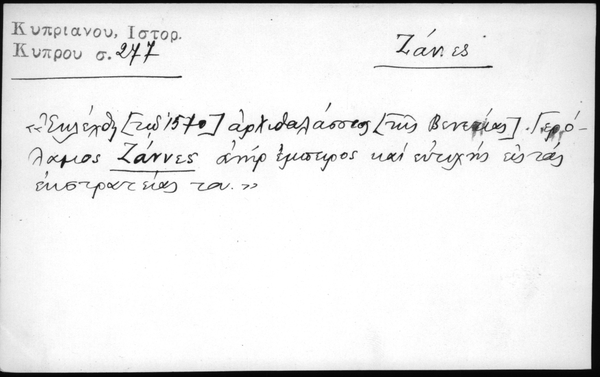 Κυπριανου, Ιστορ.
Κυπρου σ. 277
Ζάννες
«Ἐκλέχθη [τῷ 1570] ἀρχιθαλάσσιος [τῆς Βενετίας] Γερό-
λαμος Ζάννες ἀνήρ ἔμπειρος καί εὐτυχής εἰς τάς
ἐκστρατείας του.»